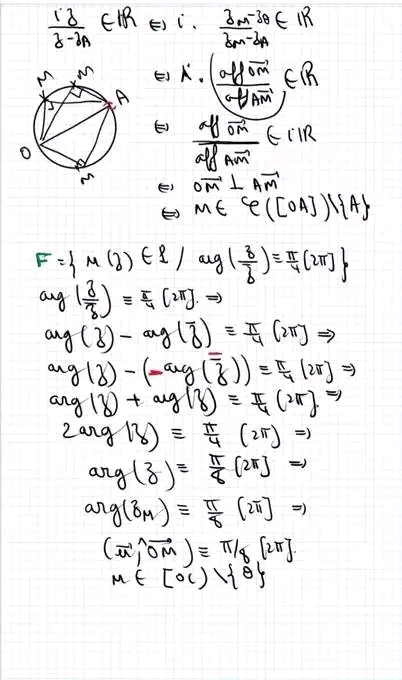 iz/(z-z_A) ∈ ℝ ⇔ i. (z_M-z_O)/(z_M-z_A) ∈ ℝ
⇔ i. (aff OM⃗ / aff AM⃗) ∈ ℝ
⇔ aff OM⃗ / aff AM⃗ ∈ iℝ
⇔ OM⃗ ⊥ AM⃗
⇔ M ∈ 𝒞([OA])\{A}
M
M
A
O
M
F = { M(z) ∈ / arg(z/z̄) ≡ π/4 [2π] }
arg(z/z̄) ≡ π/4 [2π]. ⇒
arg(z) - arg(z̄) ≡ π/4 [2π] ⇒
arg(z) - (-arg(z̄)) ≡ π/4 [2π] ⇒
arg(z) + arg(z) ≡ π/4 [2π]. ⇒
2arg(z) ≡ π/4 (2π) ⇒
arg(z) ≡ π/8 [2π] ⇒
arg(z_M) ≡ π/8 [2π] ⇒
(u⃗,^OM⃗) ≡ π/8 [2π].
M ∈ [OC) \{θ}